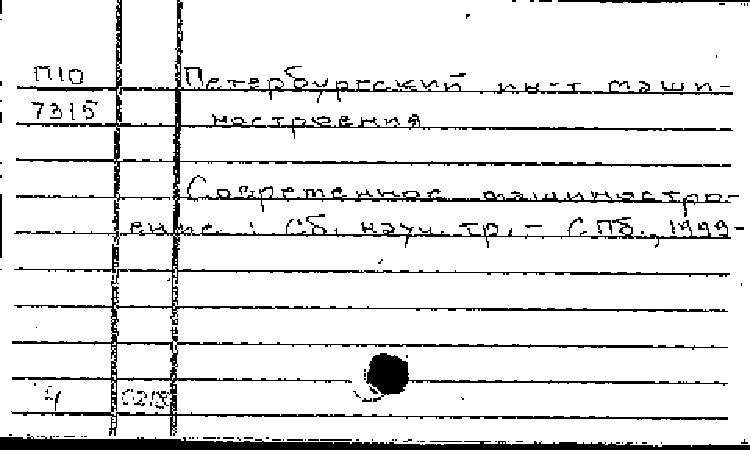 П10 Петербургский ин-т маши-
7315 ностроения
Современное машиностро-
ение : Сб. науч. тр. - СПб., 1999-
4